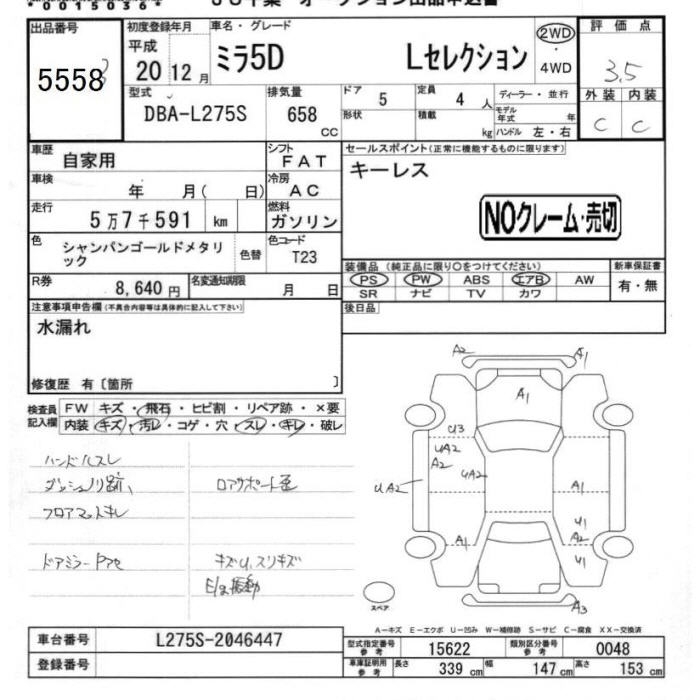 *0015036*
出品番号 初度登録年月 車名・グレード 2WD 評価点
5558 平成 20 12月 ミラ5D Lセレクション ・ 4WD 3.5
型式 排気量 ドア 5 定員 4 人 ディーラー・並行 外装 内装
DBA-L275S 658 cc 形状 積載 kg モデル年式 年 ハンドル 左・右 C C
車歴 自家用 シフト FAT セールスポイント(正常に機能するものに限ります)
車検 年 月( 日) 冷房 AC キーレス
走行 5万7千591 km 燃料 ガソリン NOクレーム・売切
色 シャンパンゴールドメタリック 色替 色コード T23
R券 8,640円 名変通知期限 月 日 装備品(純正品に限り○をつけてください) 新車保証書
PS PW ABS エアB AW 有・無
SR ナビ TV カワ
注意事項申告欄(不具合内容等は具体的に記入して下さい) 後日品
水漏れ
修復歴 有〔箇所 〕
検査員記入欄 FW キズ・飛石・ヒビ割・リペア跡・×要
内装 キズ・汚レ・コゲ・穴・スレ・キレ・破レ
ハンドルスレ
ダッシュノリ跡、 ロアサポート歪
フロアマットキレ
ドアミラーアセ キズU、スリキズ
E/g振動
A2 A1
A1
U3
UA2
A2 UA2
UA2 A1
U1
A1 A2
U1
スペア A3
A-キズ E-エクボ U-凹み W-補修跡 S-サビ C-腐食 XX-交換済
車台番号 L275S-2046447 型式指定番号 参考 15622 類別区分番号 参考 0048
登録番号 車庫証明用 参考 長さ 339 cm 幅 147 cm 高さ 153 cm